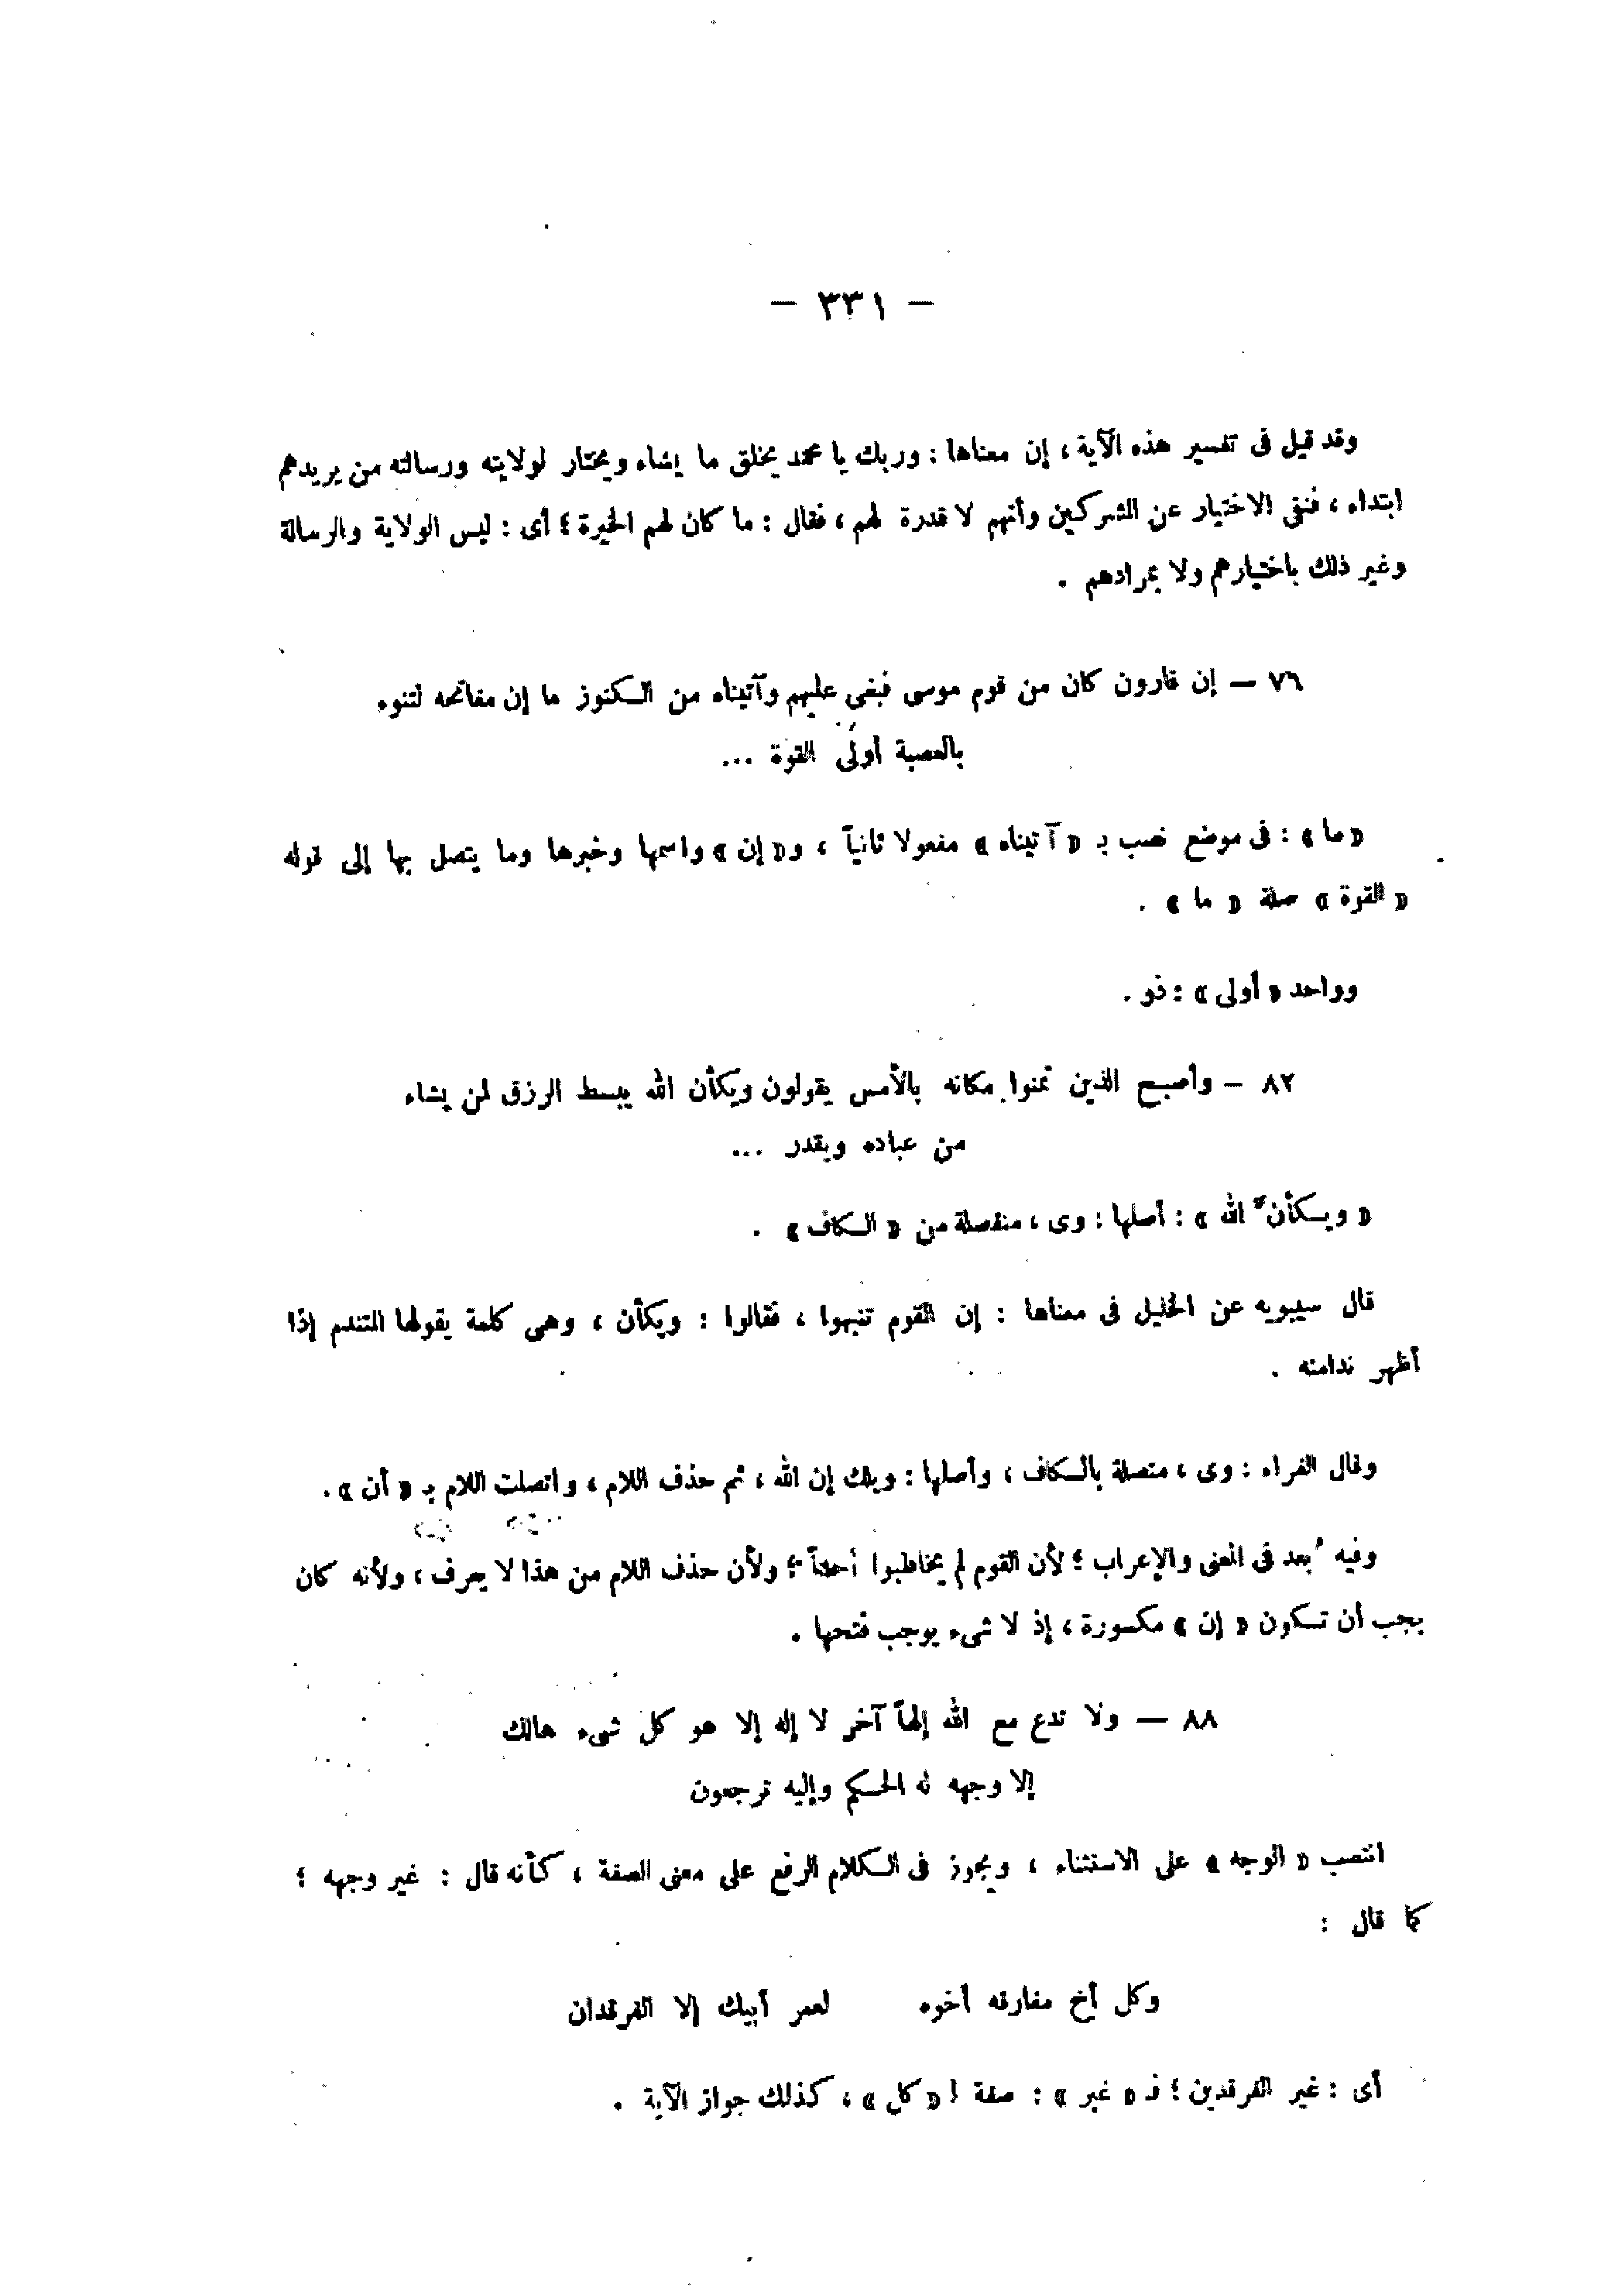 – ٣٣١ –
وقد قيل فى تفسير هذه الآية ، إن معناها : وربك يا محمد يخلق ما يشاء ويختار لولايته ورسالته من يريدهم
ابتداء ، فنفى الاختيار عن المشركين وأنهم لا قدرة لهم ، فقال : ما كان لهم الخيرة ؛ أى : ليس الولاية والرسالة
وغير ذلك باختيارهم ولا بمرادهم .
٧٦ – إن قارون كان من قوم موسى فبغى عليهم وآتيناه من الكنوز ما إن مفاتحه لتنوء
بالعصبة أولى القوة ...
« ما » : فى موضع نصب بـ « آتيناه » مفعولا ثانياً ، و« إن » واسمها وخبرها وما يتصل بها إلى قوله
« القوة » صلة « ما » .
وواحد « أولى » : ذو .
٨٢ – وأصبح الذين تمنوا مكانه بالأمس يقولون ويكأن الله يبسط الرزق لمن يشاء
من عباده ويقدر ...
« ويكأنّ الله » : أصلها : وى ، منفصلة من « الكاف » .
قال سيبويه عن الخليل فى معناها : إن القوم تنبهوا ، فقالوا : ويكأن ، وهى كلمة يقولها المتندم إذا
أظهر ندامته .
وقال الفراء : وى ، متصلة بالكاف ، وأصلها : ويلك إن الله ، ثم حذف اللام ، واتصلت اللام بـ « أن » .
وفيه بُعد فى المعنى والإعراب ؛ لأن القوم لم يخاطبوا أحداً ؛ ولأن حذف اللام من هذا لا يعرف ، ولأنه كان
يجب أن تكون « إن » مكسورة ، إذ لا شىء يوجب فتحها .
٨٨ – ولا تدع مع الله إلهاً آخر لا إله إلا هو كل شىء هالك
إلا وجهه له الحكم وإليه ترجعون
انتصب « الوجه » على الاستثناء ، ويجوز فى الكلام الرفع على معنى الصفة ، كأنه قال : غير وجهه ؛
كما قال :
وكل أخ مفارقه أخوه لعمر أبيك إلا الفرقدان
أى : غير الفرقدين ؛ فـ « غير » : صفة لـ « كل » ، كذلك جواز الآية .